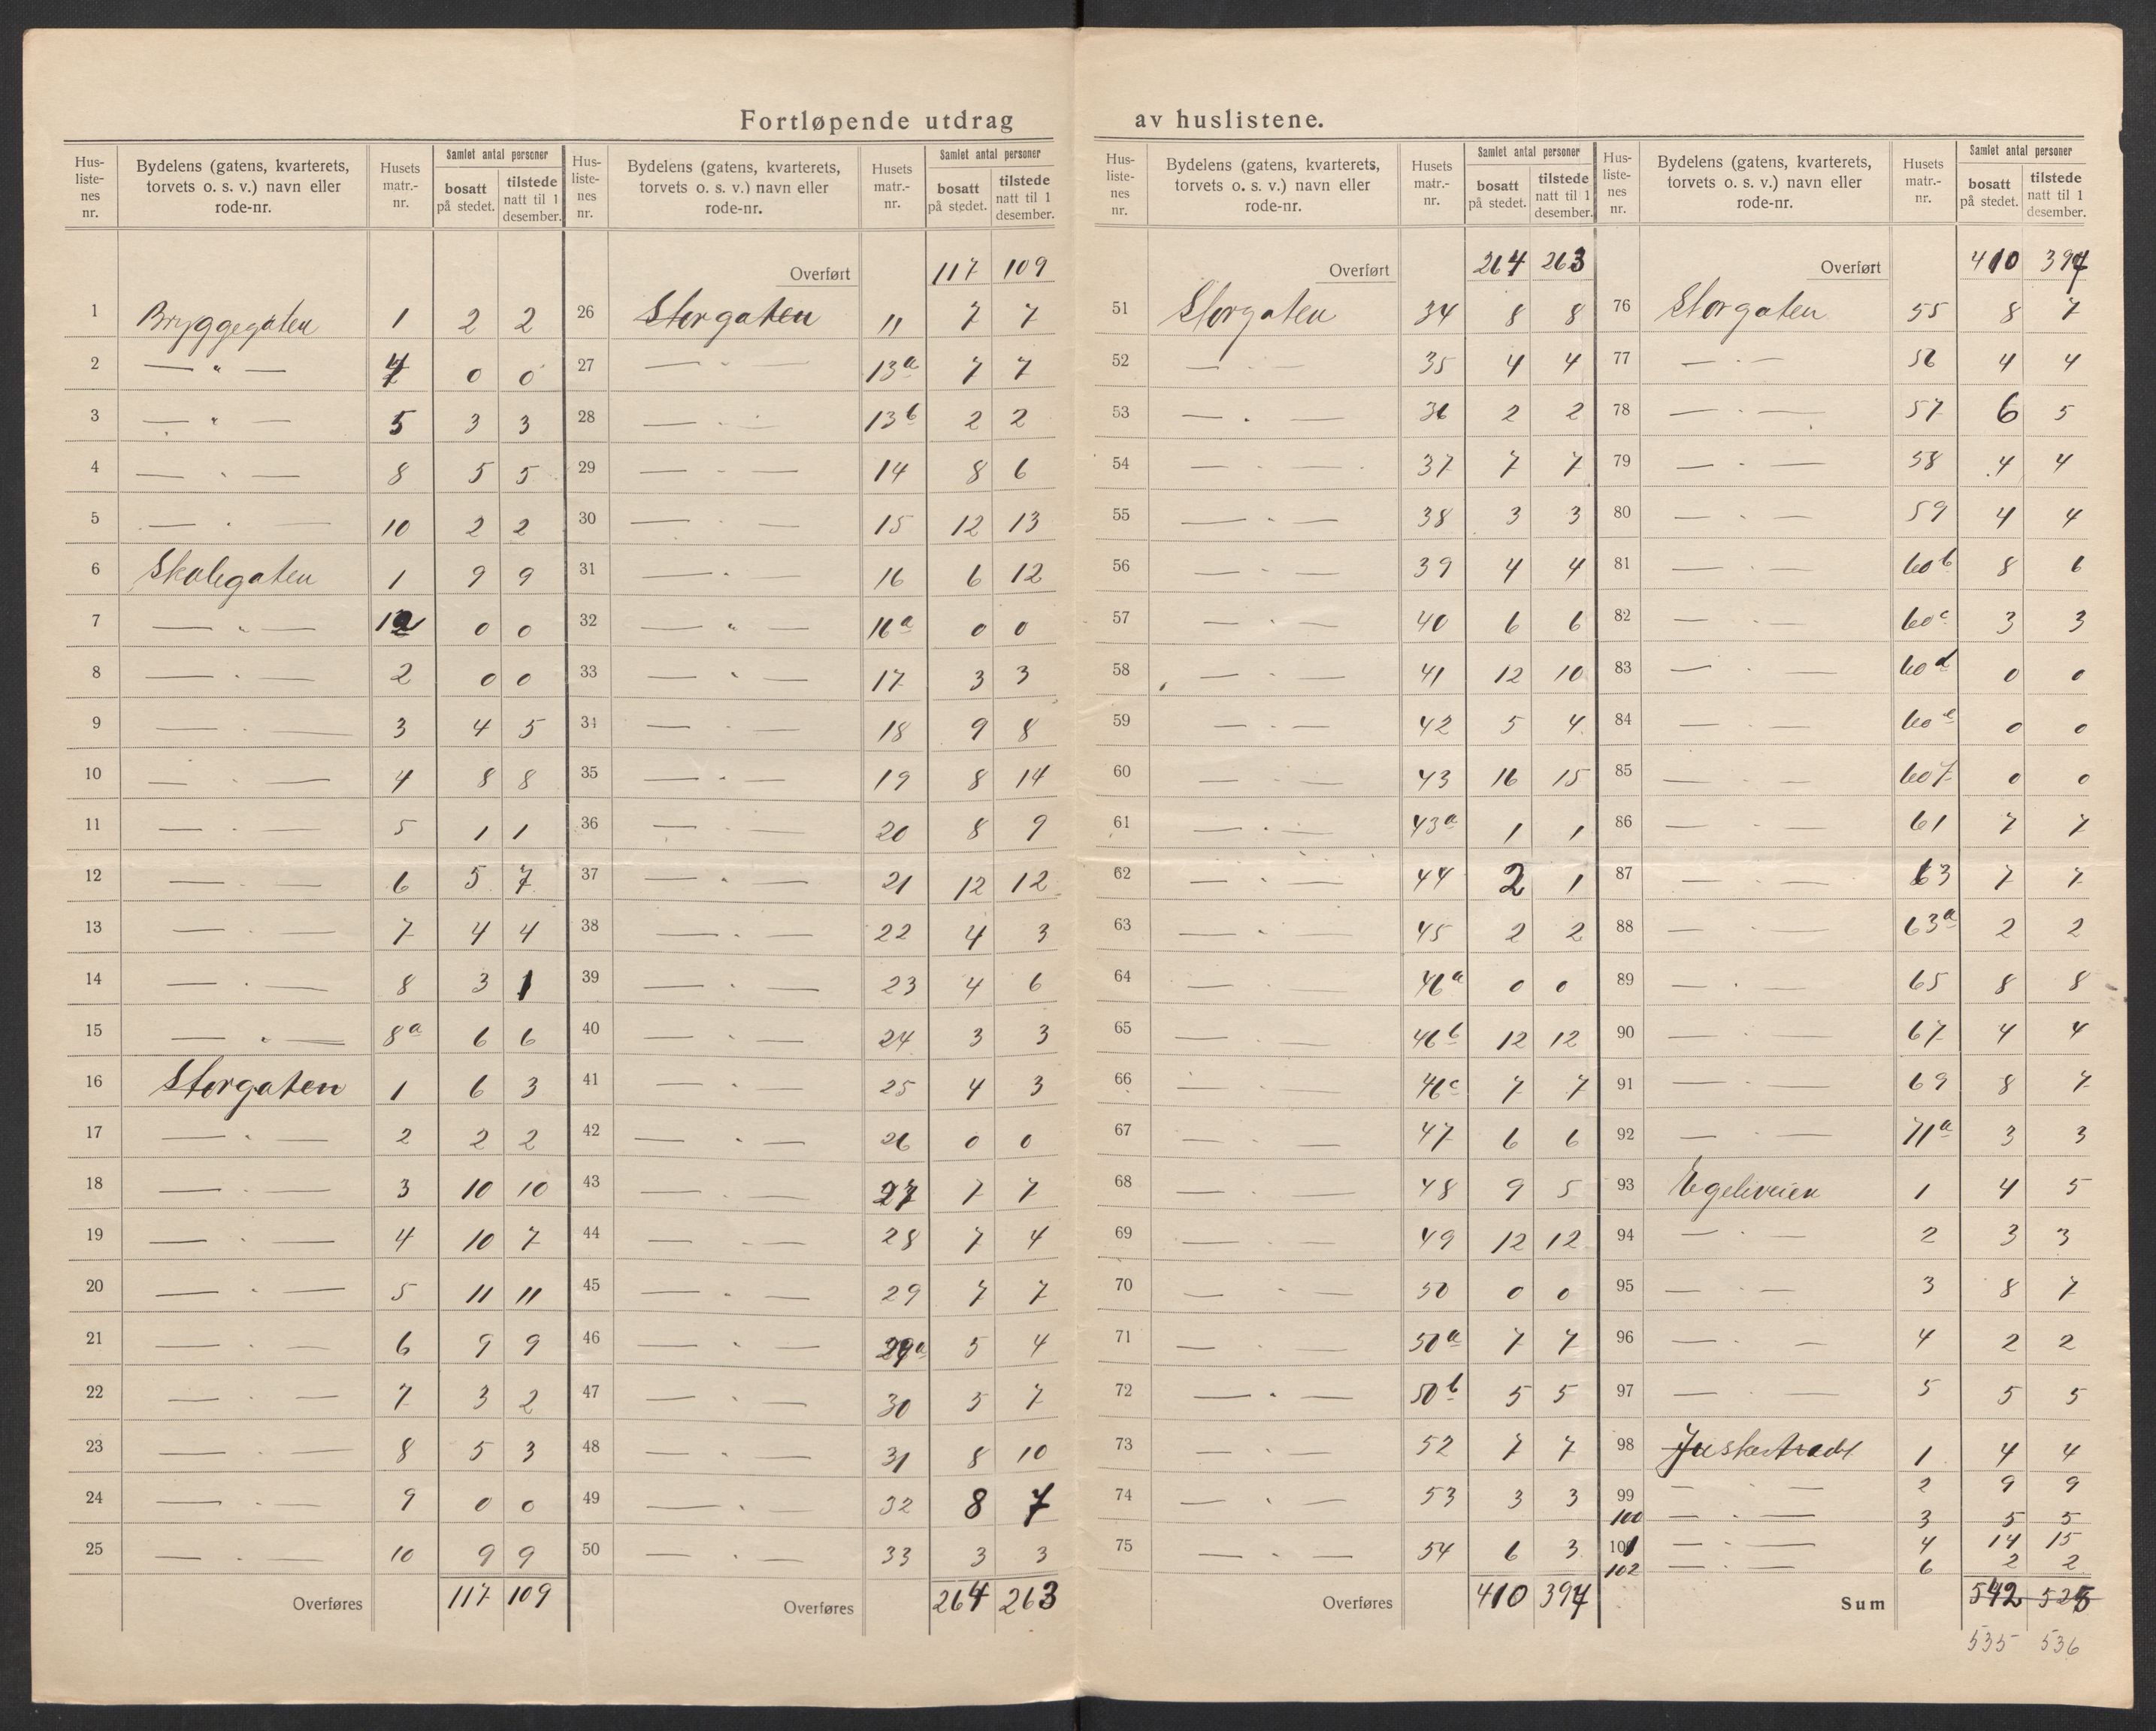 Fortløpende utdrag av huslistene.
Hus-liste-nes nr. | Bydelens (gatens, kvarterets, torvets o. s. v.) navn eller rode-nr. | Husets matr.-nr. | Samlet antal personer bosatt på stedet. | tilstede natt til 1 desember.
1 Bryggegaten 1 2 2
2 — " — 4 0 0
3 — " — 5 3 3
4 — " — 8 5 5
5 — " — 10 2 2
6 Skolegaten 1 9 9
7 — " — 1a 0 0
8 — " — 2 0 0
9 — " — 3 4 5
10 — " — 4 8 8
11 — " — 5 1 1
12 — " — 6 5 7
13 — " — 7 4 4
14 — " — 8 3 1
15 — " — 8a 6 6
16 Storgaten 1 6 3
17 — " — 2 2 2
18 — " — 3 10 10
19 — " — 4 10 7
20 — " — 5 11 11
21 — " — 6 9 9
22 — " — 7 3 2
23 — " — 8 5 3
24 — " — 9 0 0
25 — " — 10 9 9
Overføres 117 109
Hus-liste-nes nr. | Bydelens (gatens, kvarterets, torvets o. s. v.) navn eller rode-nr. | Husets matr.-nr. | Samlet antal personer bosatt på stedet. | tilstede natt til 1 desember.
Overført 117 109
26 Storgaten 11 7 7
27 — " — 13a 7 7
28 — " — 13b 2 2
29 — " — 14 8 6
30 — " — 15 12 13
31 — " — 16 6 12
32 — " — 16a 0 0
33 — " — 17 3 3
34 — " — 18 9 8
35 — " — 19 8 14
36 — " — 20 8 9
37 — " — 21 12 12
38 — " — 22 4 3
39 — " — 23 4 6
40 — " — 24 3 3
41 — " — 25 4 3
42 — " — 26 0 0
43 — " — 27 7 7
44 — " — 28 7 4
45 — " — 29 7 7
46 — " — 29a 5 4
47 — " — 30 5 7
48 — " — 31 8 10
49 — " — 32 8 7
50 — " — 33 3 3
Overføres 264 263
Hus-liste-nes nr. | Bydelens (gatens, kvarterets, torvets o. s. v.) navn eller rode-nr. | Husets matr.-nr. | Samlet antal personer bosatt på stedet. | tilstede natt til 1 desember.
Overført 264 263
51 Storgaten 34 8 8
52 — " — 35 4 4
53 — " — 36 2 2
54 — " — 37 7 7
55 — " — 38 3 3
56 — " — 39 4 4
57 — " — 40 6 6
58 — " — 41 12 10
59 — " — 42 5 4
60 — " — 43 16 15
61 — " — 43a 1 1
62 — " — 44 2 1
63 — " — 45 2 2
64 — " — 46a 0 0
65 — " — 46b 12 12
66 — " — 46c 7 7
67 — " — 47 6 6
68 — " — 48 9 5
69 — " — 49 12 12
70 — " — 50 0 0
71 — " — 50a 7 7
72 — " — 50b 5 5
73 — " — 52 7 7
74 — " — 53 3 3
75 — " — 54 6 3
Overføres 410 397
Hus-liste-nes nr. | Bydelens (gatens, kvarterets, torvets o. s. v.) navn eller rode-nr. | Husets matr.-nr. | Samlet antal personer bosatt på stedet. | tilstede natt til 1 desember.
Overført 410 397
76 Storgaten 55 8 7
77 — " — 56 4 4
78 — " — 57 6 5
79 — " — 58 4 4
80 — " — 59 4 4
81 — " — 60b 8 6
82 — " — 60c 3 3
83 — " — 60d 0 0
84 — " — 60e 0 0
85 — " — 60f 0 0
86 — " — 61 7 7
87 — " — 63 7 7
88 — " — 63a 2 2
89 — " — 65 8 8
90 — " — 67 4 4
91 — " — 69 8 7
92 — " — 71a 3 3
93 Egeliveien 1 4 5
94 — " — 2 3 3
95 — " — 3 8 7
96 — " — 4 2 2
97 — " — 5 5 5
98 1 4 4
99 — " — 2 9 9
100 — " — 3 5 5
101 — " — 4 14 15
102 — " — 6 2 2
Sum 542 525
535 536